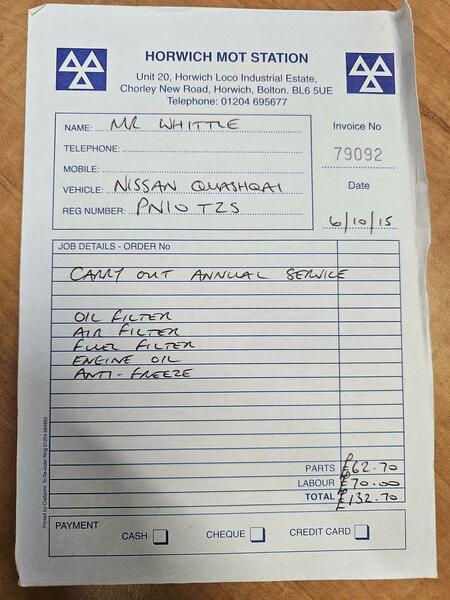 HORWICH MOT STATION
Unit 20, Horwich Loco Industrial Estate,
Chorley New Road, Horwich, Bolton. BL6 5UE
Telephone: 01204 695677
NAME: MR WHITTLE
TELEPHONE:
MOBILE:
VEHICLE: NISSAN QUASHQAI
REG NUMBER: PN10 TZS
Invoice No
79092
Date
6/10/15
JOB DETAILS - ORDER No
CARRY OUT ANNUAL SERVICE
OIL FILTER
AIR FILTER
FUEL FILTER
ENGINE OIL
ANTI-FREEZE
PARTS £62.70
LABOUR £70.00
TOTAL £132.70
PAYMENT
CASH CHEQUE CREDIT CARD